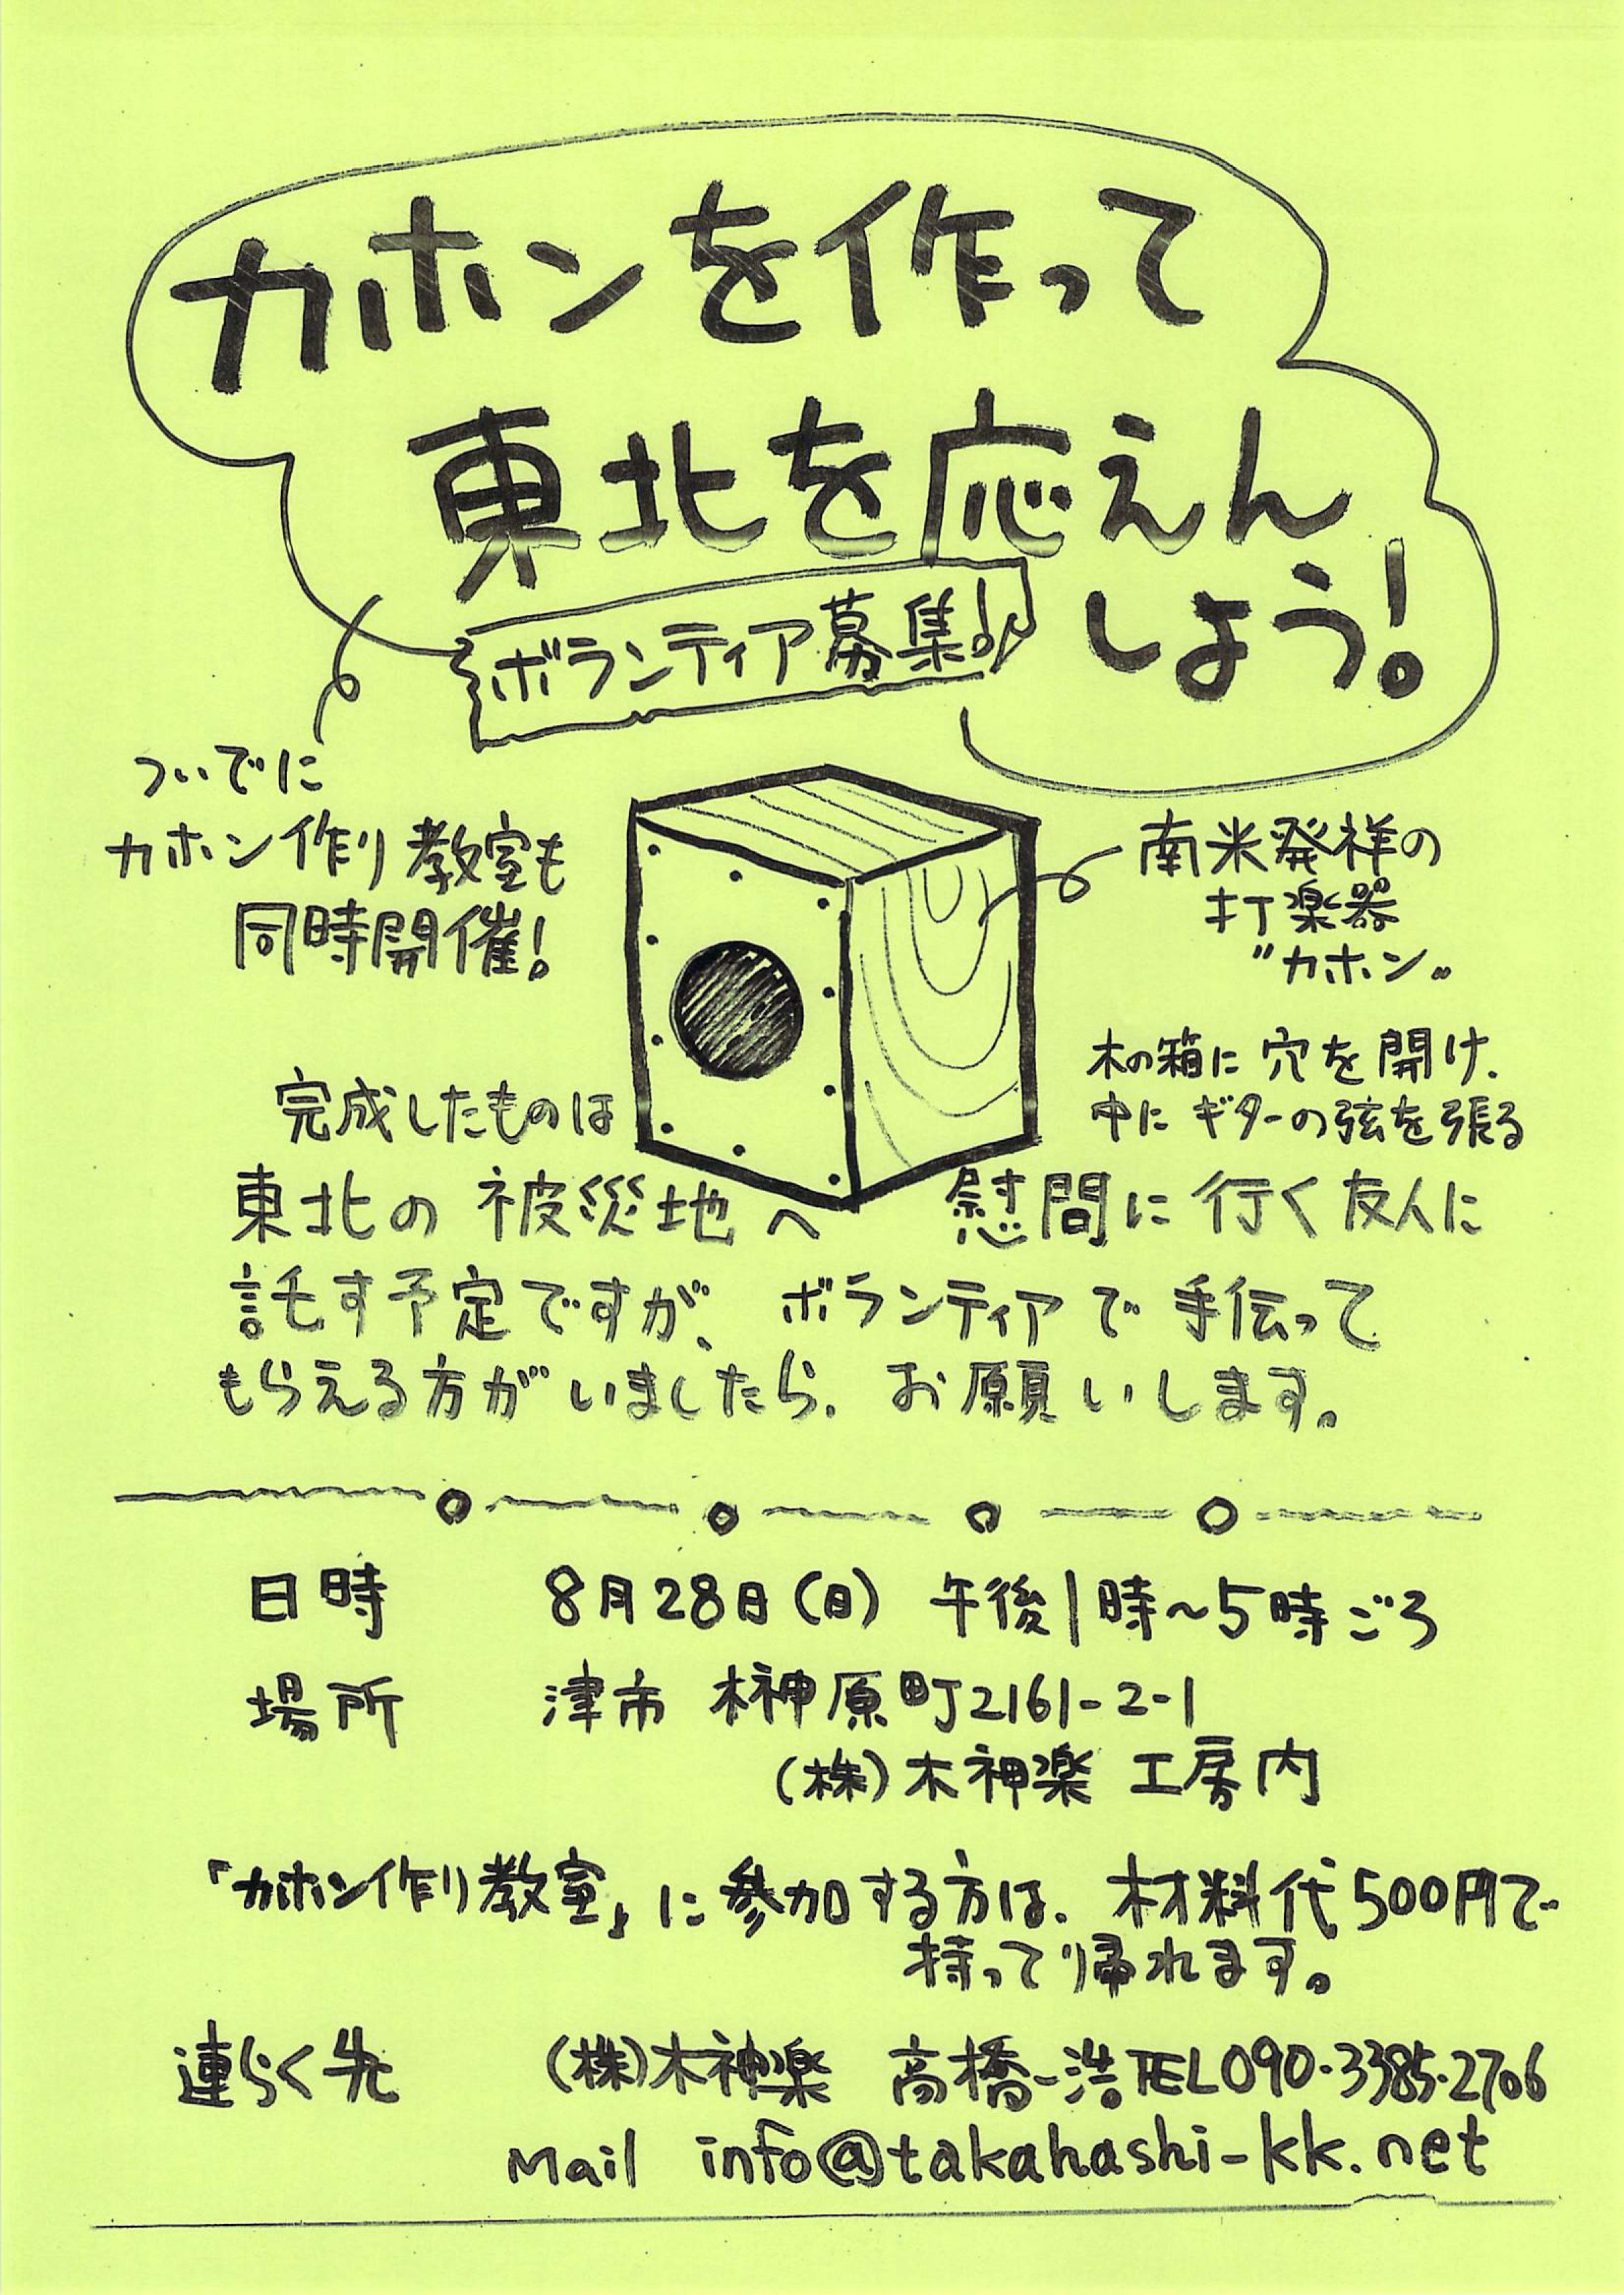 カホンを作って
東北を応えん
しよう!
ボランティア募集!!
ついでに
カホン作り教室も
同時開催!
南米発祥の
打楽器
"カホン"
木の箱に穴を開け、
中にギターの弦を張る
完成したものは
東北の被災地へ 慰問に行く友人に
託す予定ですが、ボランティアで手伝って
もらえる方がいましたら、お願いします。
日時 8月28日(日) 午後1時~5時ごろ
場所 津市 榊原町2161-2-1
(株)木神楽 工房内
「カホン作り教室」に参加する方は、材料代500円で
持って帰れます。
連らく先 (株)木神楽 高橋一浩 TEL090-3385-2706
Mail info@takahashi-kk.net